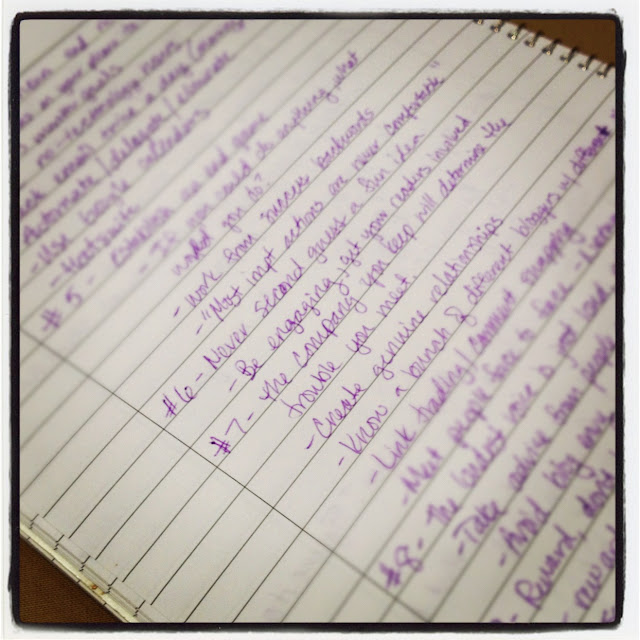 as your plans to
goals
re-
email twice a day
Automate / delegate / eliminate
- Use Google calendars
- Hootsuite
#5 - establish an end game
- If you could do anything, what
would you do?
- Work from success backwards
- "Most impt actions are never comfortable"
#6 - Never second guess a fun idea
- Be engaging / get your readers involved
#7 - The company you keep will determine the
trouble you meet.
- Create genuine relationships
- Know a bunch of different bloggers w/ different
- Link trading / comment swapping
- Meet people face to face -
#8 - The loudest voice is not
- Take advice from people
- Avoid blog
- Reward, don't